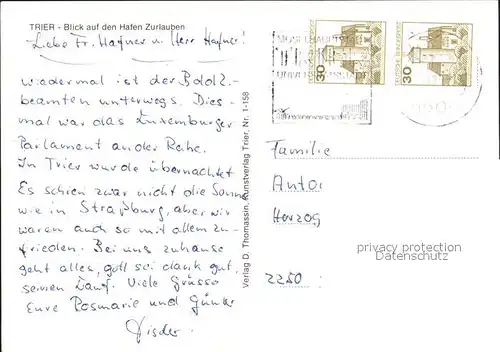 TRIER - Blick auf den Hafen Zurlauben
Liebe Fr. Hafner u. Herr Hafner!
wiedermal ist der
beamten unterwegs. Dies-
mal war das Luxemburger
Parlament an der Reihe.
In Trier wurde übernachtet
Es schien zwar nicht die Sonne
wie in Straßburg, aber wir
waren auch so mit allem zu-
frieden. Bei uns zuhause
geht alles, gott sei dank gut,
seinen Lauf. Viele Grüsse
Eure Rosmarie und
Verlag D. Thomassin, Kunstverlag Trier, Nr. 1-158
30
DEUTSCHE BUNDESPOST
30
DEUTSCHE BUNDESPOST
UNIVERSITÄTSSTADT
Familie
Anto.
Herzog
2250
privacy protection
Datenschutz